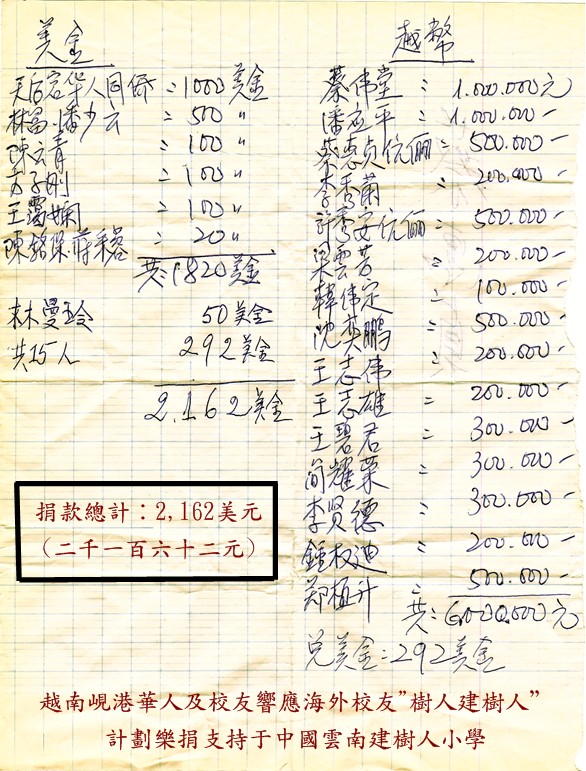 美金
天后宮华人同僑 = 1000 美金
林昌.潘少云 = 500 〃
陳云青 = 100 〃
方子刚 = 100 〃
王靄嫻 = 100 〃
陳銘琛蔣秉蓉 = 20 〃
共:1820美金
林曼玲 50美金
共15人 292美金
2.162美金
捐款總計：2,162美元
（二千一百六十二元）
越幣
蔡伟堂 = 1.000.000元
潘应平 = 1.000.000-
蔡惠贞伉俪 = 500.000-
李秀蘭 = 200.000-
許秀安伉俪 = 500.000-
梁雲芳 = 200.000-
韓伟定 = 100.000-
沈英鹏 = 500.000-
王志伟 = 200.000-
王志雄 = 200.000-
王碧君 = 300.000-
简耀荣 = 300.000-
李贤德 = 300.000-
鍾权迪 = 200.000-
郑植升 = 500.000-
共: 6.000.000元
兑美金:=292美金
越南峴港華人及校友響應海外校友"樹人建樹人"
計劃樂捐支持于中國雲南建樹人小學